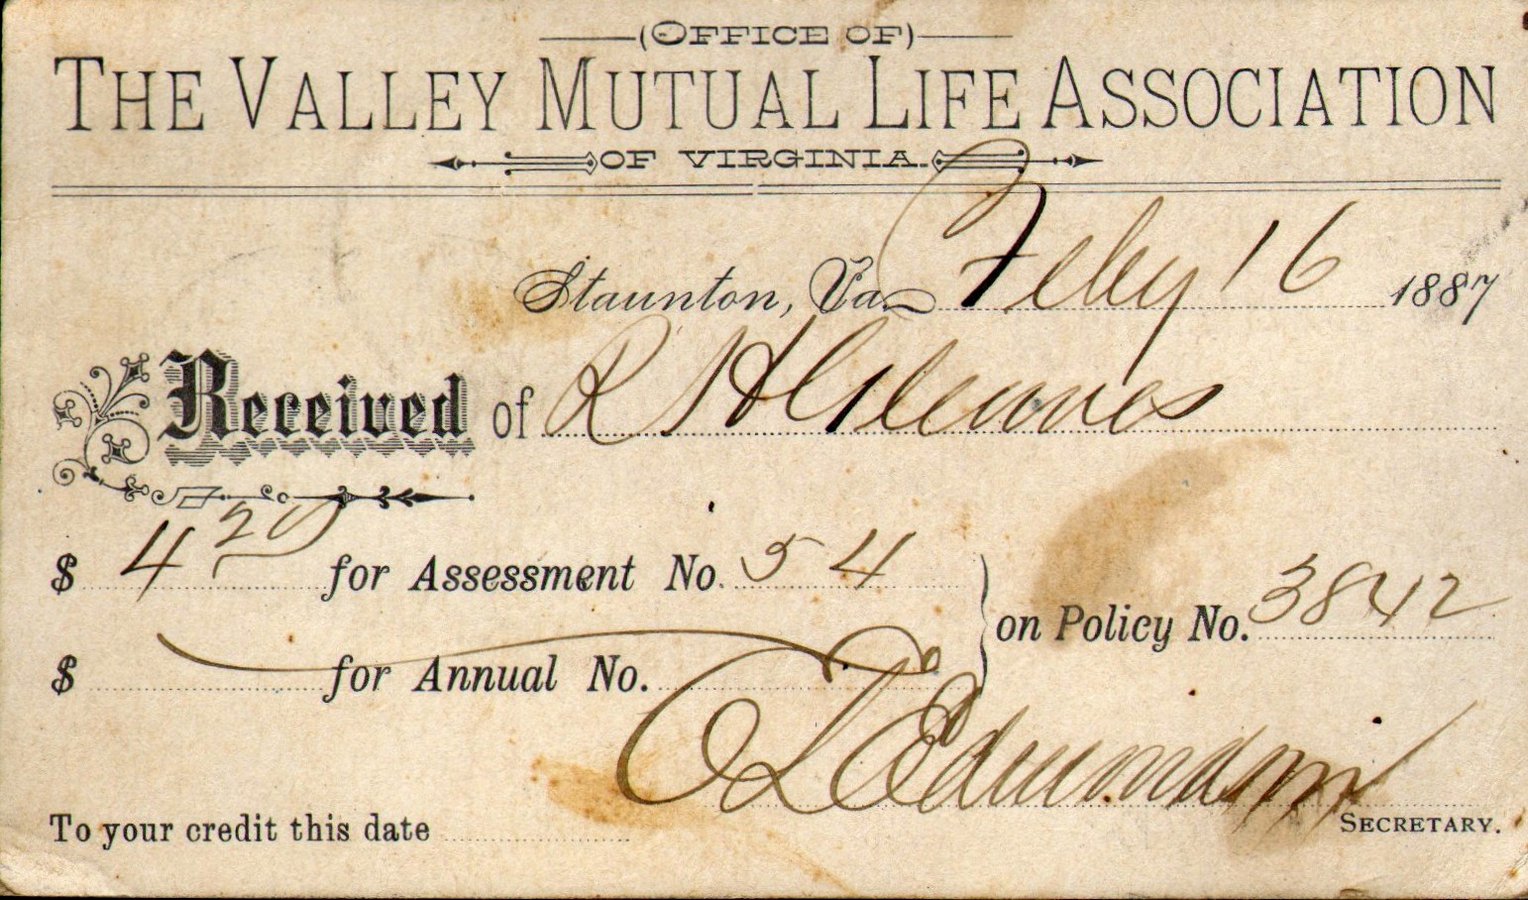 (OFFICE OF)
THE VALLEY MUTUAL LIFE ASSOCIATION
OF VIRGINIA.
Staunton, Va. Feby 16 1887
Received of R H
$ 4 20 for Assessment No. 54
on Policy No. 3842
$ for Annual No.
To your credit this date
SECRETARY.